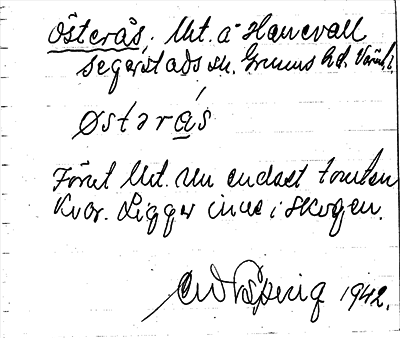 Österås, Åt. å Hanevall
segerstads sn. Grums hd. Värml.
østərás
Förut Åt. Nu endast tomten
kvar. Ligger inne i skogen.
1942.